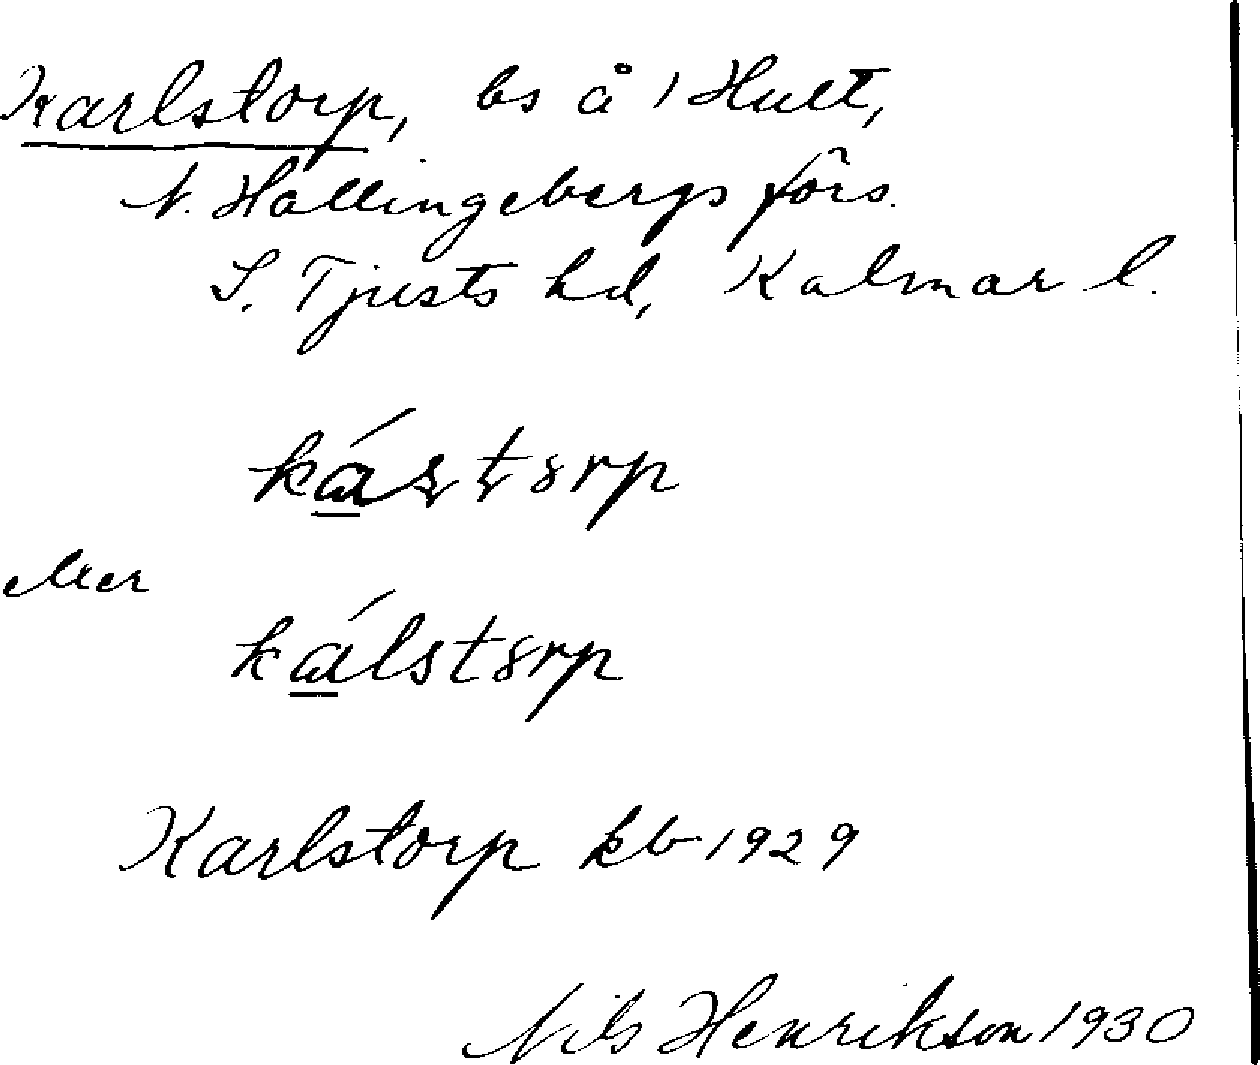 Karlstorp, bs å 1 Hult,
N. Hallingebergs förs.
S. Tjusts hd, Kalmar l.
ká̱ʂʈ8rp
eller
ká̱lst8rp
Karlstorp kb 1929
Nils Henrikson 1930